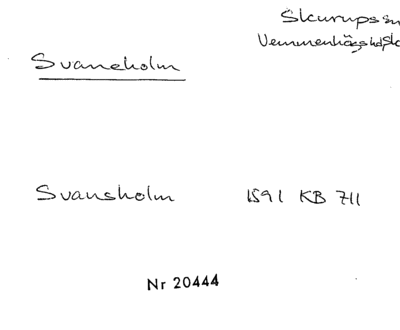 Skurups sn
Vemmenhögs hd Sk
Svaneholm
Svansholm 1591 KB 711
Nr 20444